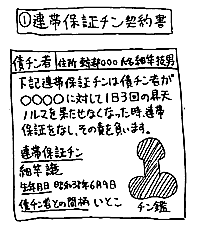 ①連帯保証チン契約書
債チン者 住所 京都〇〇〇 氏名 細竿 技男
下記連帯保証チンは債チン者が
〇〇〇〇に対して1日3回の昇天
ノルマを果たせなくなった時、連帯
保証をなし、その責を負います。
連帯保証チン
細竿 譲
生年月日 昭和37年6月9日
債チン者との間柄 いとこ
チン鑑